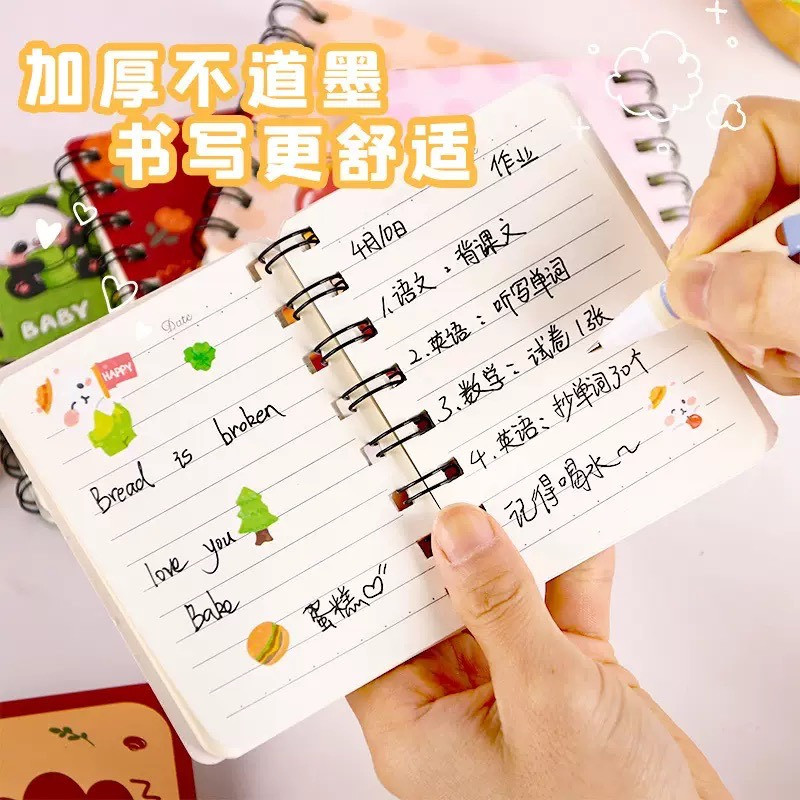 加厚不道墨
书写更舒适
BABY
Date
HAPPY
Bread is broken
love you
Babe
蛋糕
作业
4月10日
1.语文：背课文
2.英语：听写单词
3.数学：试卷1张
4.英语：抄单词30个
记得喝水~